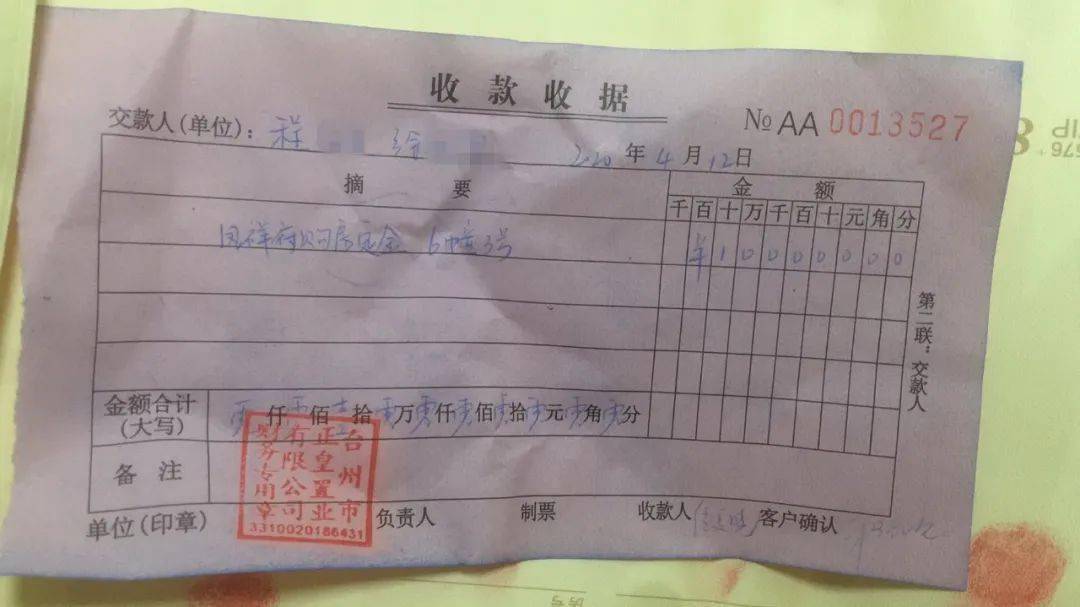 收款收据
№ AA 0013527
交款人(单位)：程 徐 2020年4月12日
摘要 金额
千百十万千百十元角分
府认购房定金 6幢3号 ¥10000000
第二联：交款人
金额合计(大写) 零仟零佰壹拾零万零仟零佰零拾零元零角零分
备注
台州市
正皇置业
有限公司
财务专用章
3310020186431
单位(印章) 负责人 制票 收款人 客户确认